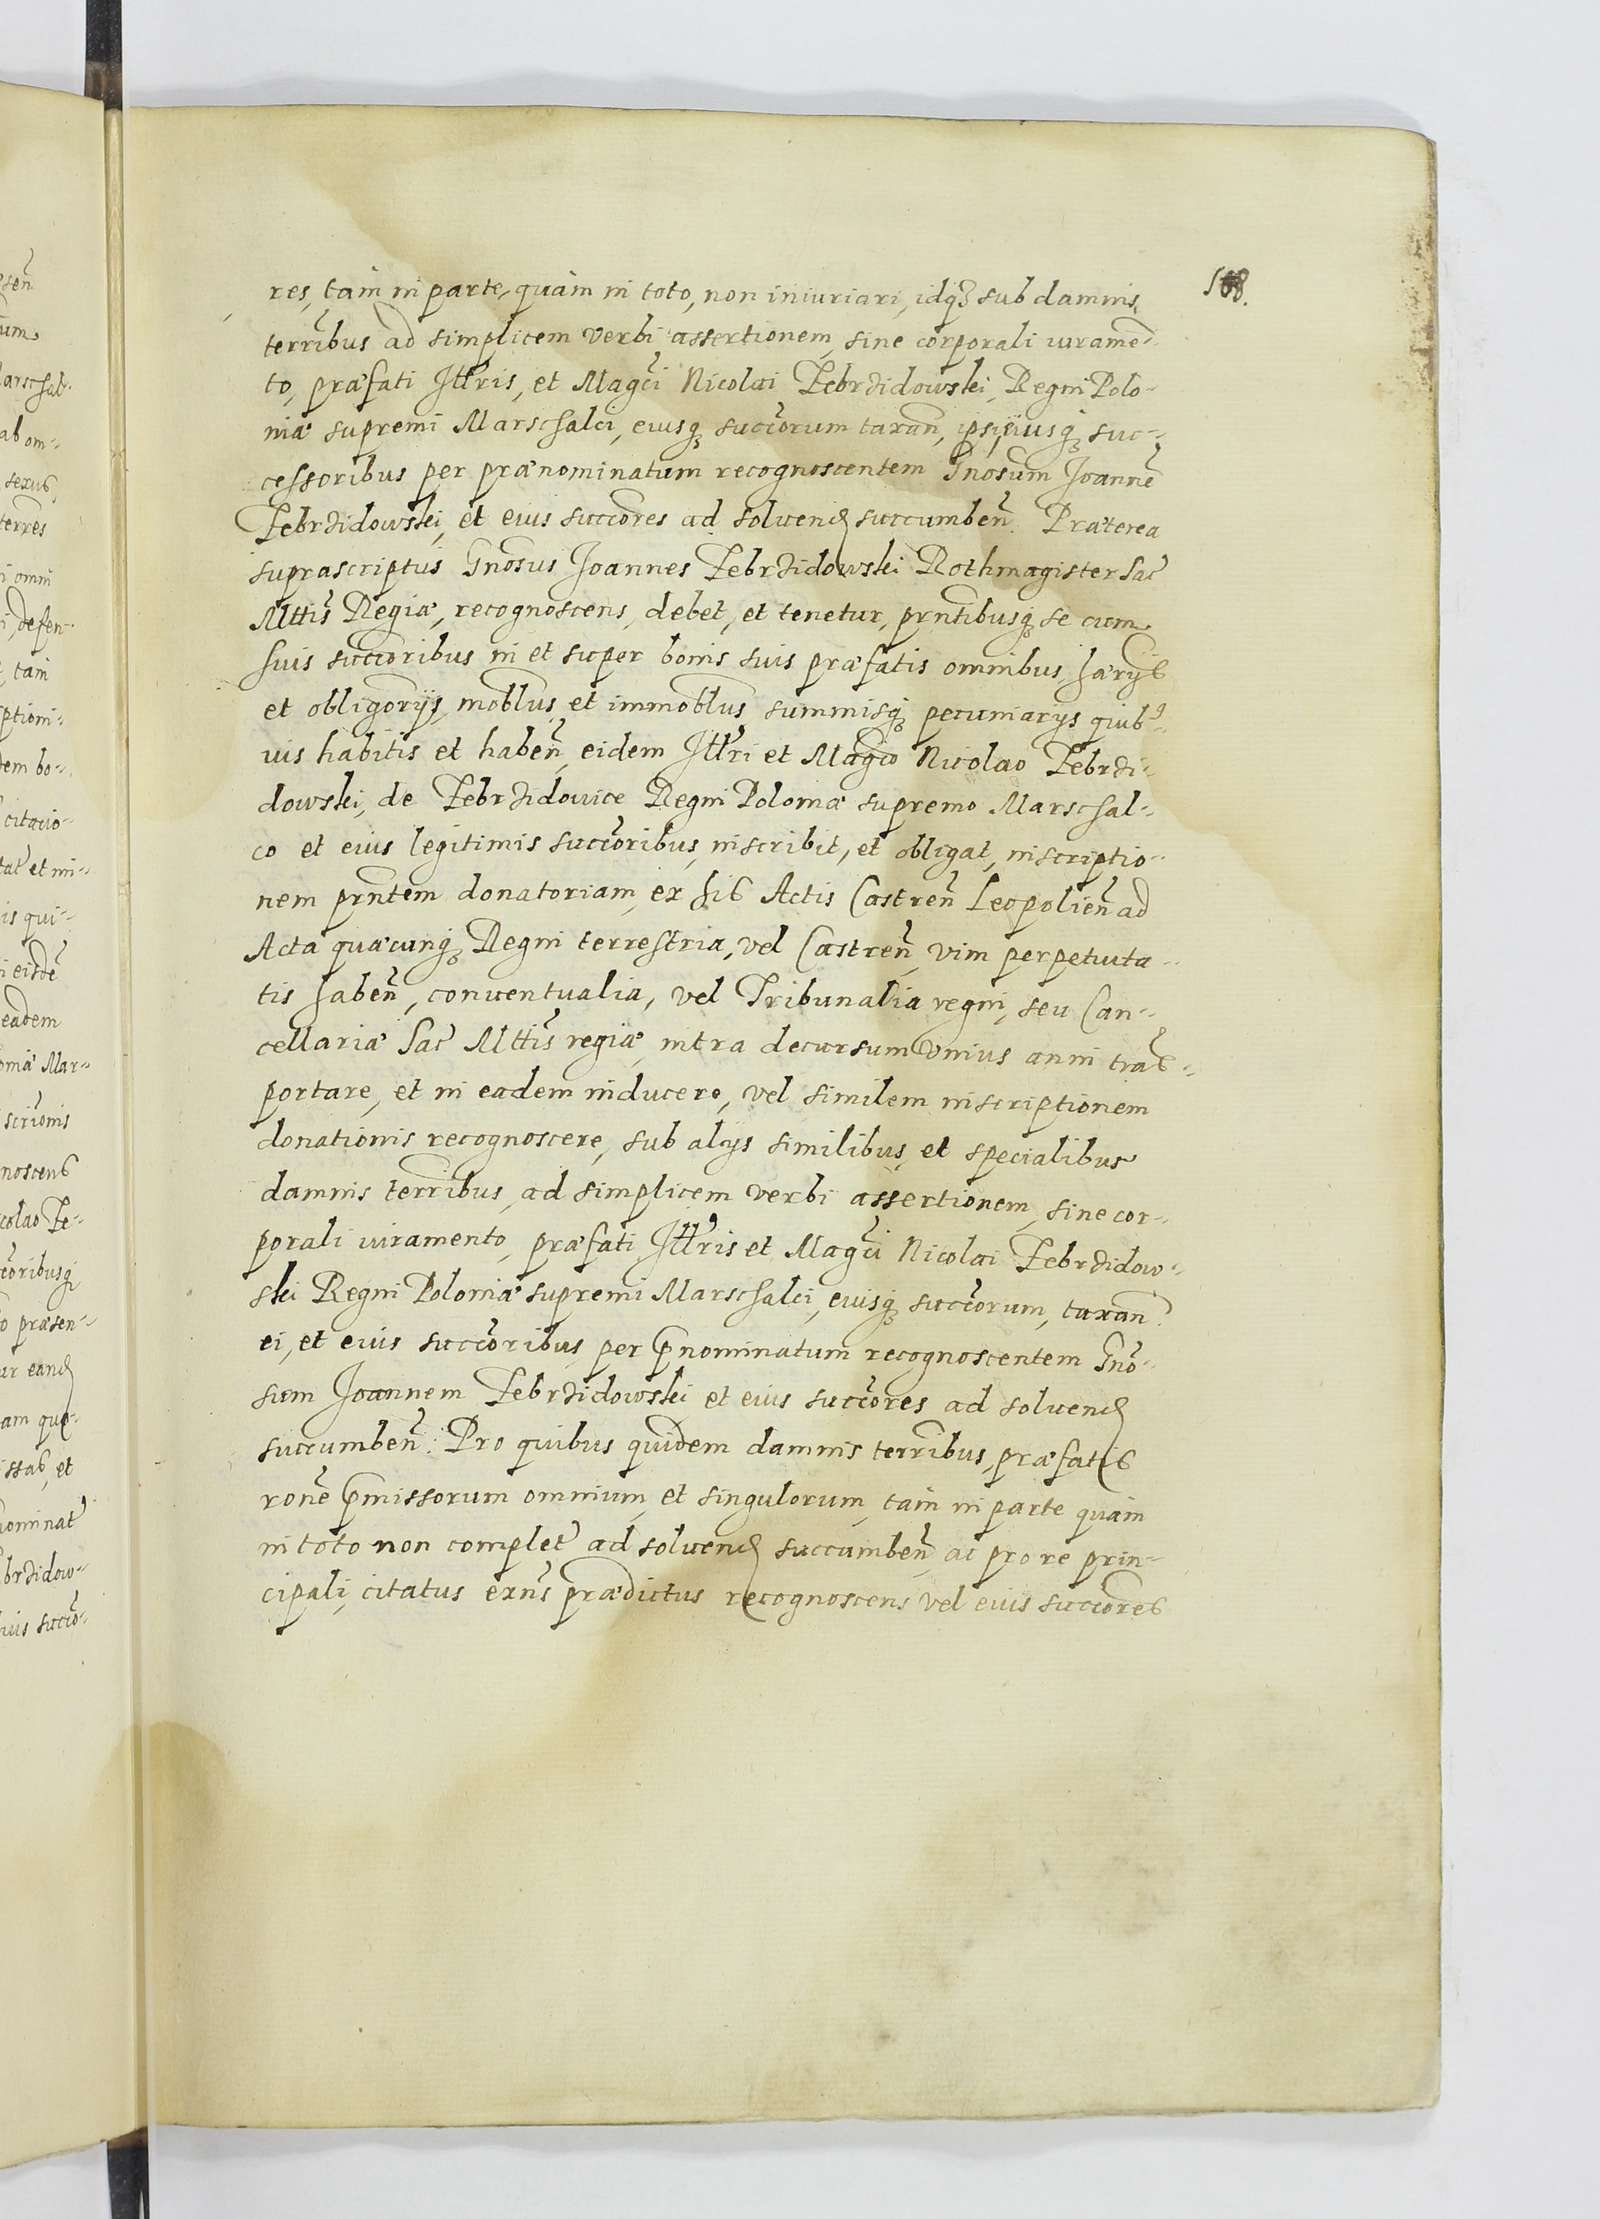 168.
res, tam in parte, quam in toto, non iniuriari, idq₃ sub damnis
terribus ad simplicem verbi assertionem, sine corporali iuramē-
to, præfati Illris, et Magci Nicolai Zebrzidowski, Regni Polo-
niæ supremi Marschalci, eiusq₃ succorum taxan, ipsi eiusq₃ suc-
cessoribus per prænominatum recognoscentem Gnosum Joannē
Zebrzidowski, et eius succores ad soluend succumben̄. Præterea
suprascriptus Gnosus Joannes Zebrzidowski Rothmagister Sac
Mttis Regiæ, recognoscens, debet, et tenetur, prntibusq₃ se cum
suis succoribus in et super bonis suis præfatis omnibus hærijs
et obligorijs moblbus et immoblbus summisq₃ pecuniarijs quib9-
uis habitis et haben̄, eidem Illri et Magco Nicolao Zebrzi-
dowski, de Zebrzidowice Regni Poloniæ supremo Marschal-
co et eius legitimis succoribus, inscribit, et obligat, inscriptio-
nem prntem donatoriam, ex his Actis Castren̄ Leopolien̄ ad
Acta quæcunq₃ Regni terrestria, vel Castren̄, vim perpetuita-
tis haben̄, conuentualia, vel Tribunalia regni, seu Can-
cellariæ Sac Mttis regiæ, intra decursum vnius anni tras-
portare, et in eadem inducere, vel similem inscriptionem
donationis recognoscere, sub alijs similibus, et specialibus
damnis terribus, ad simplicem verbi assertionem, sine cor-
porali iuramento, præfati Illris et Magci Nicolai Zebrzidow-
ski Regni Poloniæ supremi Marschalci, eiusq₃ succorum, taxan
ei, et eius succoribus per p̄nominatum recognoscentem Gno-
sum Joannem Zebrzidowski et eius succores ad soluend
succumben̄. Pro quibus quidem damnis terribus, præfatis
ronē p̄missorum omnium, et singulorum, tam in parte quam
in toto non complet ad soluend succumben̄, ac pro re prin-
cipali, citatus exns prædictus recognoscens vel eius succores